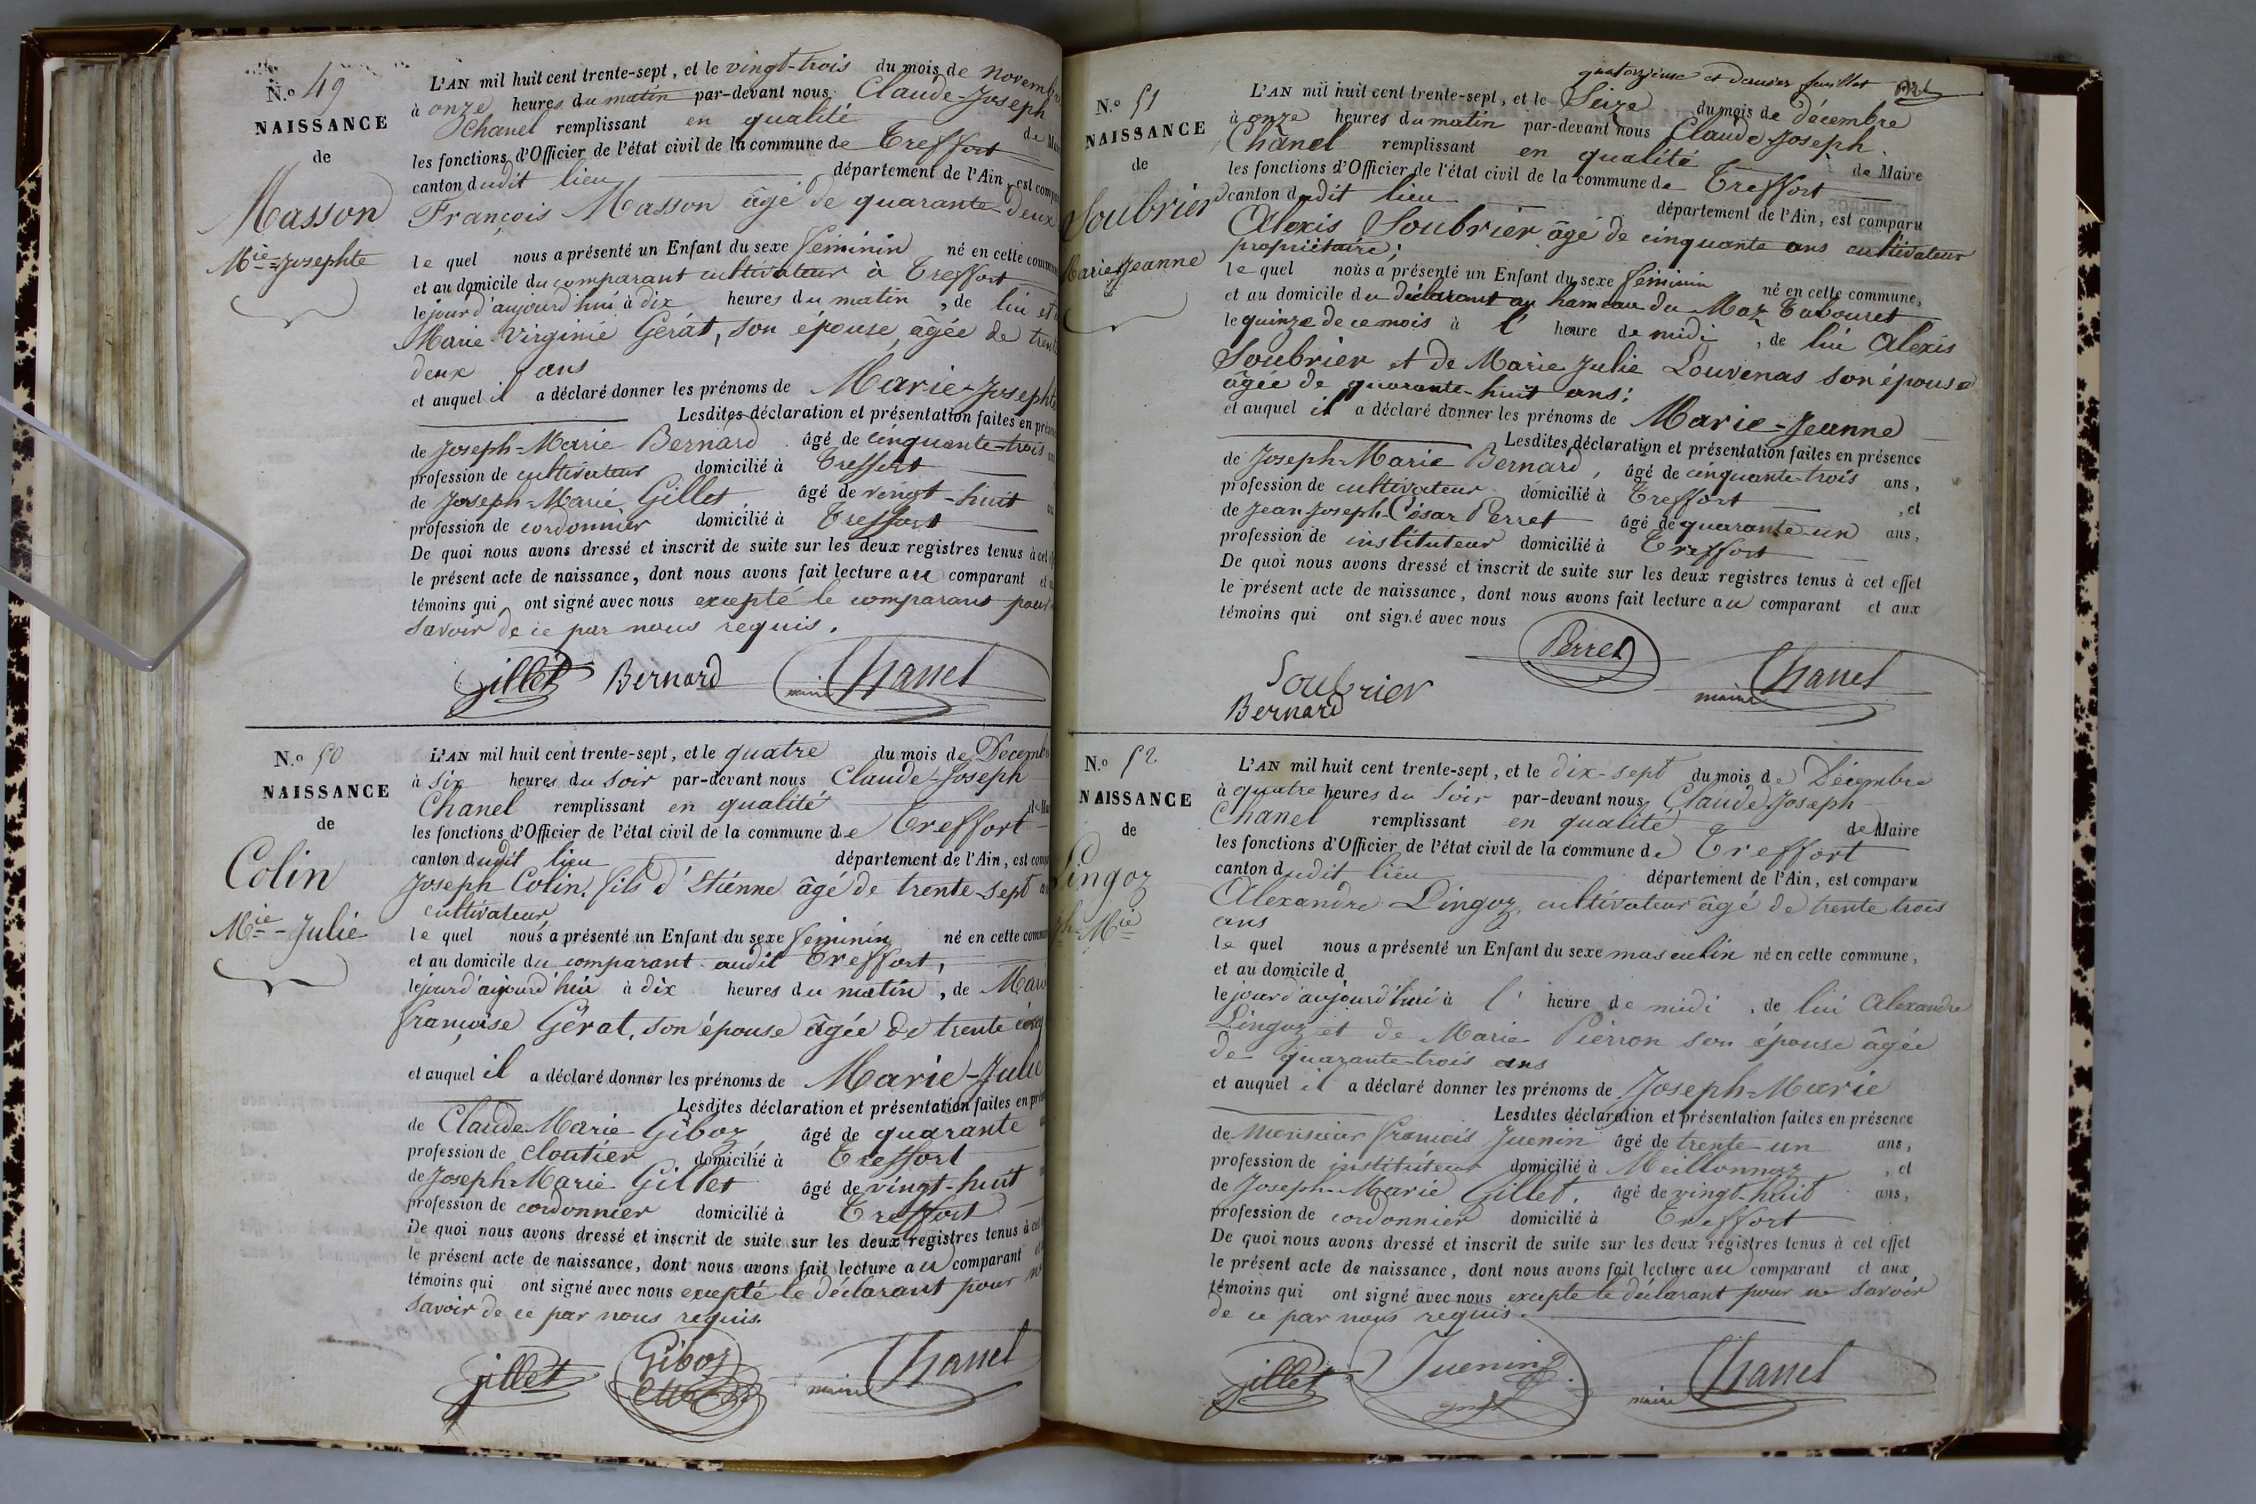 N.° 49
NAISSANCE
de
Masson
M.ie-Josephte
L'AN mil huit cent trente-sept, et le vingt-trois du mois de novembre
à onze heures du matin par-devant nous Claude-Joseph
Chanel remplissant en qualité de Mai
les fonctions d'Officier de l'état civil de la commune de Treffort
canton dudit lieu département de l'Ain, est compa
François Masson âgé de quarante-deux
le quel nous a présenté un Enfant du sexe féminin né en cette commun
et au domicile du comparant cultivateur à Treffort
le jour d'aujourd'hui à dix heures du matin, de lui et
Marie Virginie Gérat, son épouse, âgée de trente
deux ans
et auquel il a déclaré donner les prénoms de Marie-Josephte
Lesdites déclaration et présentation faites en présen
de Joseph-Marie Bernard âgé de cinquante-trois
profession de cultivateur domicilié à Treffort
de Joseph-Marie Gillet âgé de vingt-huit
profession de cordonnier domicilié à Treffort
De quoi nous avons dressé et inscrit de suite sur les deux registres tenus à cet
le présent acte de naissance, dont nous avons fait lecture au comparant et
témoins qui ont signé avec nous excepté le comparant pour
savoir de ce par nous requis.
Gillet Bernard maire Chanel
N.° 50
NAISSANCE
de
Colin
M.ie-Julie
L'AN mil huit cent trente-sept, et le quatre du mois de Décembre
à six heures du soir par-devant nous Claude-Joseph
Chanel remplissant en qualité de Ma
les fonctions d'Officier de l'état civil de la commune de Treffort
canton dudit lieu département de l'Ain, est comp
Joseph Colin, fils d'Etienne âgé de trente-sept
cultivateur
le quel nous a présenté un Enfant du sexe féminin né en cette commun
et au domicile du comparant audit Treffort,
le jour d'aujourd'hui à dix heures du matin, de Marie
françoise Gérat, son épouse âgée de trente cinq
et auquel il a déclaré donner les prénoms de Marie-Julie
Lesdites déclaration et présentation faites en pré
de Claude-Marie Giboz âgé de quarante
profession de cloutier domicilié à Treffort
de Joseph-Marie Gillet âgé de vingt-huit
profession de cordonnier domicilié à Treffort
De quoi nous avons dressé et inscrit de suite sur les deux registres tenus à cet
le présent acte de naissance, dont nous avons fait lecture au comparant
témoins qui ont signé avec nous excepté le déclarant pour ne
savoir de ce par nous requis.
Gillet Giboz maire Chanel
quatorzième et dernier feuillet
N.° 51
NAISSANCE
de
Soubrier
Marie Jeanne
L'AN mil huit cent trente-sept, et le Seize du mois de décembre
à onze heures du matin par-devant nous Claude Joseph
Chanel remplissant en qualité de Maire
les fonctions d'Officier de l'état civil de la commune de Treffort
canton dudit lieu département de l'Ain, est comparu
Alexis Soubrier âgé de cinquante ans cultivateur
propriétaire;
le quel nous a présenté un Enfant du sexe féminin né en cette commune,
et au domicile du déclarant au hameau du Maz Tabouret
le quinze de ce mois à l' heure de midi, de lui Alexis
Soubrier et de Marie Julie Louvenas son épouse
âgée de quarante-huit ans;
et auquel il a déclaré donner les prénoms de Marie-Jeanne
Lesdites déclaration et présentation faites en présence
de Joseph-Marie Bernard, âgé de cinquante-trois ans,
profession de cultivateur domicilié à Treffort, et
de Jean Joseph César Perret âgé de quarante-un ans,
profession de instituteur domicilié à Treffort
De quoi nous avons dressé et inscrit de suite sur les deux registres tenus à cet effet
le présent acte de naissance, dont nous avons fait lecture au comparant et aux
témoins qui ont signé avec nous
Perret
Soubrier maire Chanel
Bernard
N.° 52
NAISSANCE
de
Lingoz
ph-M.ie
L'AN mil huit cent trente-sept, et le dix-sept du mois de Décembre
à quatre heures du Soir par-devant nous Claude Joseph
Chanel remplissant en qualité de Maire
les fonctions d'Officier de l'état civil de la commune de Treffort
canton dudit lieu département de l'Ain, est comparu
Alexandre Lingoz, cultivateur âgé de trente trois
ans
le quel nous a présenté un Enfant du sexe masculin né en cette commune,
et au domicile d
le jour d'aujourd'hui à l' heure de midi, de lui Alexandre
Lingoz et de Marie Pierron son épouse âgée
de quarante-trois ans
et auquel il a déclaré donner les prénoms de Joseph-Marie
Lesdites déclaration et présentation faites en présence
de monsieur françois Juenin âgé de trente-un ans,
profession de instituteur domicilié à Meillonnaz, et
de Joseph-Marie Gillet, âgé de vingt-huit ans,
profession de cordonnier domicilié à Treffort
De quoi nous avons dressé et inscrit de suite sur les deux registres tenus à cet effet
le présent acte de naissance, dont nous avons fait lecture au comparant et aux
témoins qui ont signé avec nous excepté le déclarant pour ne savoir
de ce par nous requis.
Gillet Juenin maire Chanel